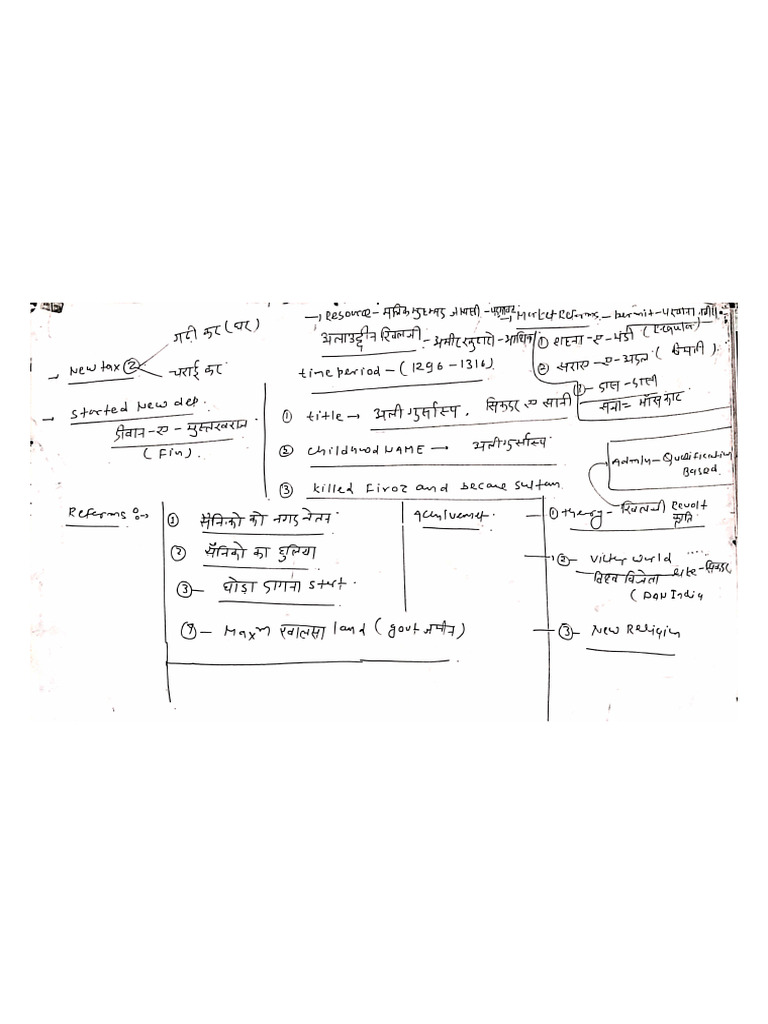 → Resource - मलिक मुहम्मद जायसी - पद्मावत
→ Market Reforms - permit - परवाना
अलाउद्दीन खिलजी - अमीर खुसरो - आशिका
time period - (1296 - 1316)
① शहना-ए-मंडी (Regular)
② सराय-ए-अदल (
सजा = माँस काट
गढ़ी कर (घर)
→ New tax ②
चराई कर
→ started New dep.
दीवान-ए-मुस्तखराज
(Fin).
① title → अली गुर्सास्प, सिकंदर-ए-सानी
② childhood NAME → अली गुर्सास्प
③ killed Firoz and became sultan
Admin - Qualification
Based
Reforms :-
① सैनिको को नगद वेतन
② सैनिको का हुलिया
③ - घोड़ा दागना start.
④ - Maxm खालसा land (govt जमीन)
Achivemet.
① theory - खिलजी Revolt
क्रांति
② - Victry world
विश्व विजेता
(PAN India
③ - New Religin